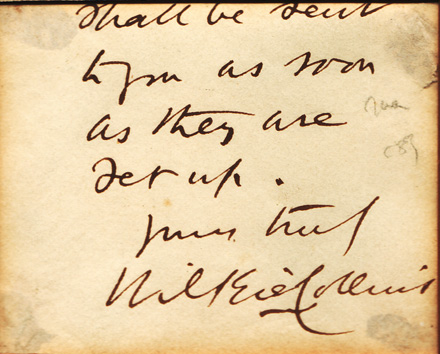 shall be sent
to you as soon
as they are
set up.
yours truly
Wilkie Collins